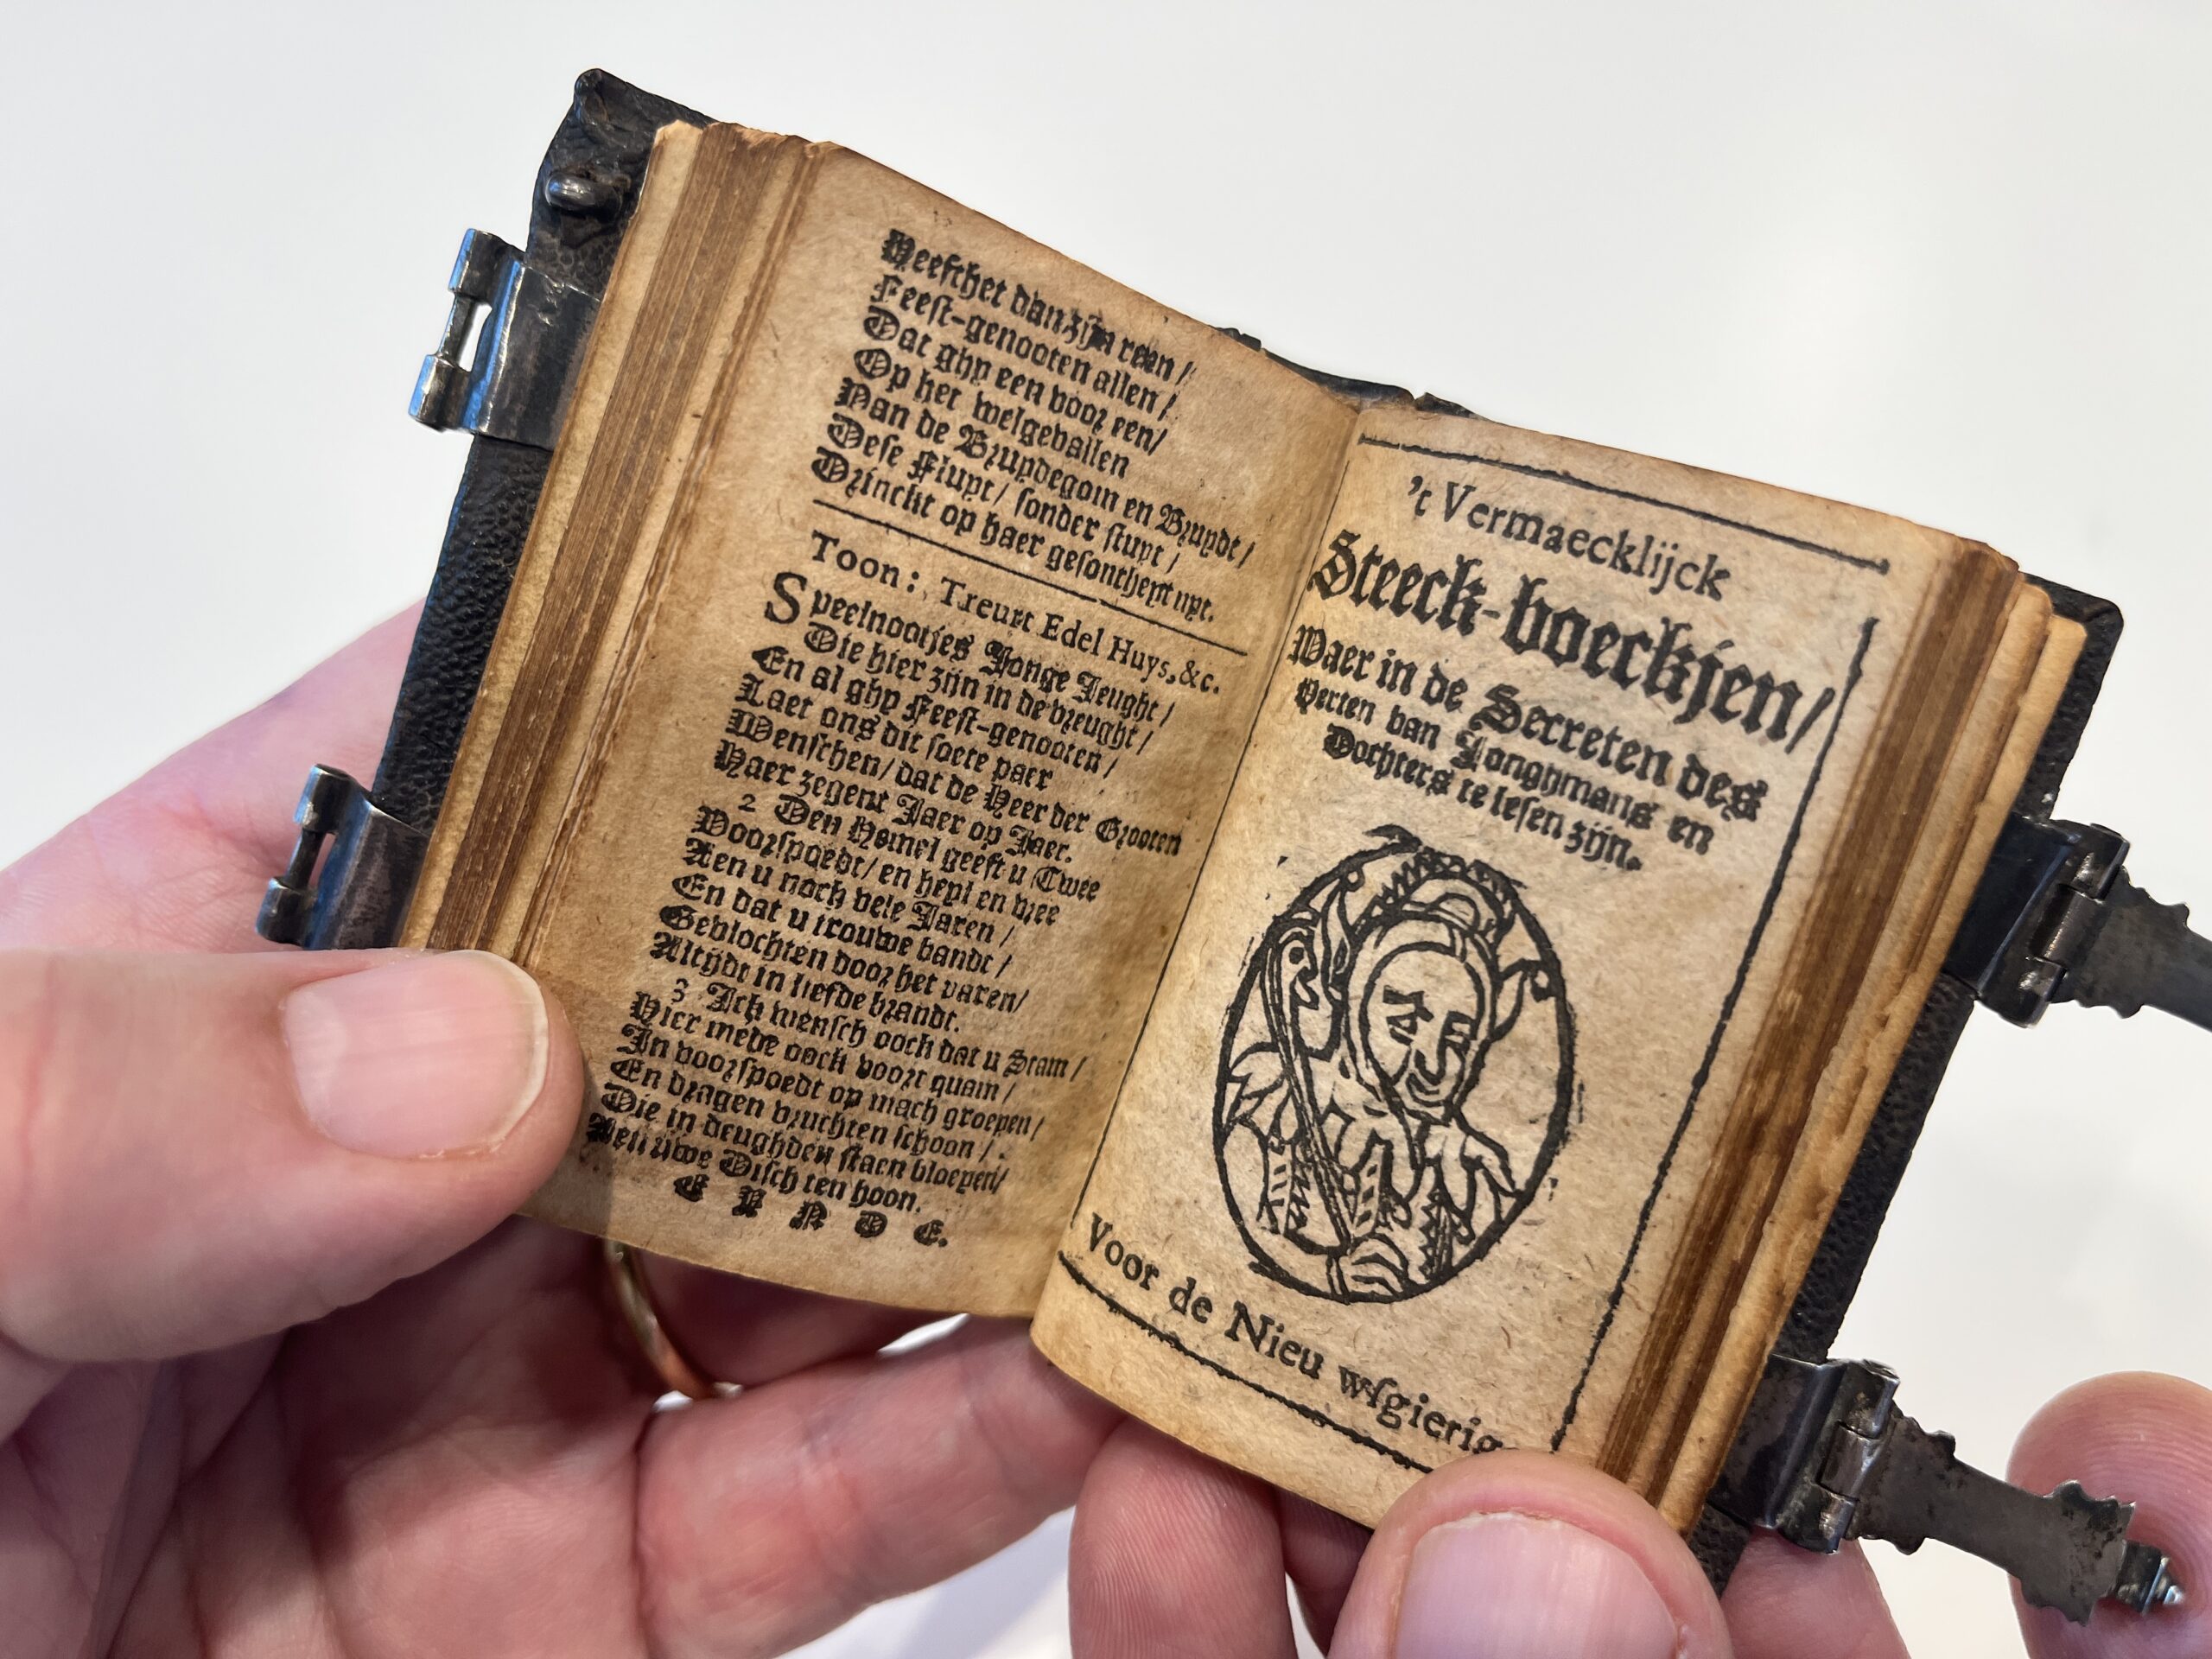 Heefthet dan zijn reen /
Feest-genooten allen /
Dat ghy een voor een /
Op het welgevallen
Van de Bruydegom en Bruydt /
Dese Fluyt / sonder stuyt /
Drinckt op haer gesontheyt uyt.
Toon: Treurt Edel Huys, &c.
Speelnootjes Jonge Jeught /
Die hier zijn in de vreught /
En al ghy Feest-genooten /
Laet ons dit soete paer
Wenschen / dat de Heer der Grooten
Haer zegent Jaer op Jaer.
2 Den Hemel geeft u Twee
Voorspoedt / en heyl en vree
Aen u noch vele Jaren /
En dat u trouwe bandt /
Gevlochten door het paren /
Altijdt in liefde brandt.
3 Ick wensch oock dat u Stam /
Hier mede oock voort quam /
In voorspoedt op mach groeyen /
En dragen vruchten schoon /
Die in deughden staen bloeyen /
Aen uwe Disch ten hoon.
E Y N D E.
't Vermaecklijck
Steeck-boeckjen /
Waer in de Secreten des
Herten van Jongmans en
Dochters te lesen zijn.
Voor de Nieu wsgierig